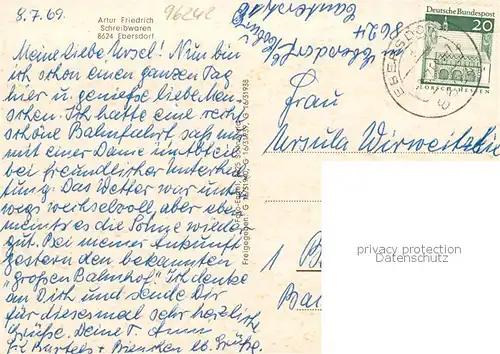 8.7.69.
Artur Friedrich
Schreibwaren
8624 Ebersdorf
96242
Meine liebe Ursel! Nun bin
ich schon einen ganzen Tag
hier u. genieße liebe Men-
schen. Ich hatte eine recht
schöne Bahnfahrt, saß nur
mit einer Dame im Abteil
bei freundlicher Unterhal-
tung. Das Wetter war unter-
wegs wechselvoll, aber eben
meint es die Sonne wieder
gut. Bei meiner Ankunft
gestern den bekannten
"großen Bahnhof". Ich denke
an Dich und sende Dir
für diesesmal sehr herzliche
Grüße. Deine T. Anni
Grüße.
Freigegeben: G
8624 Ebersdorf
Deutsche Bundespost
20
LORSCH/HESSEN
EBERSDORF
Frau
Ursula
1 B
privacy protection
Datenschutz